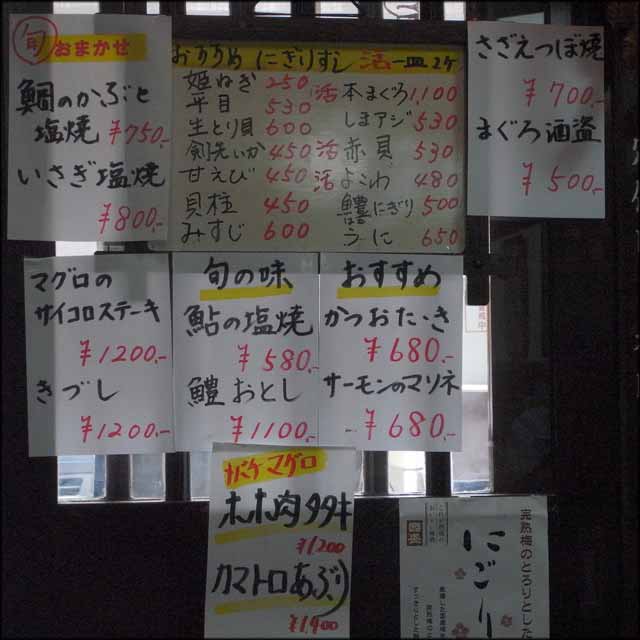 旬 おまかせ
鯛のかぶと
塩焼 ¥750.-
いさぎ塩焼
¥800.-
おすすめ にぎりずし 活 一皿2ケ
姫ねぎ 250
平目 530
生とり貝 600
剣先いか 450
甘えび 450
貝柱 450
みすじ 600
活 本まぐろ 1,100
しまアジ 530
活 赤貝 530
活 よこわ 480
鱧にぎり 500
うに 650
さざえつぼ焼
¥700.-
まぐろ酒盗
¥500.-
マグロの
サイコロステーキ
¥1200.-
きづし
¥1200.-
旬の味
鮎の塩焼
¥580.-
鱧おとし
¥1100.-
おすすめ
かつおたたき
¥680.-
サーモンのマリネ
¥680.-
バケマグロ
ホホ肉タタキ
¥1200
カマトロあぶり
¥1,900
完熟梅のとろりとした
にごり